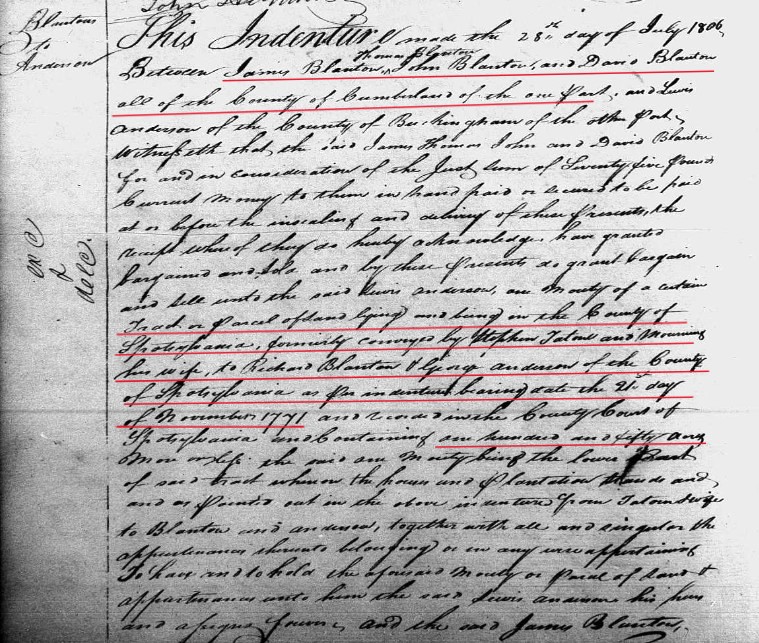 Blantons
to
Anderson
This Indenture made the 28th day of July 1806
Between James Blanton, Thomas Blanton, John Blanton, and David Blanton
all of the County of Cumberland of the one Part, and Lewis
Anderson of the County of Buckingham of the other Part,
Witnesseth that the said James Thomas John and David Blanton
for and in consideration of the Just sum of Seventy five pounds
Current Money to them in hand paid or secured to be paid
at or before the insealing and delivery of these Presents, the
receipt whereof they do hereby acknowledge, have granted
bargained and sold and by these Presents do grant bargain
and sell unto the said Lewis Anderson, one Moiety of a certain
Tract or Parcel of Land lying and being in the County of
Spotsylvania, formerly conveyed by Stephen and Mourning
his wife, to Richard Blanton & George Anderson of the County
of Spotsylvania as per indenture bearing date the 21st day
of November 1771 and recorded in the County Court of
Spotsylvania and Containing one hundred and fifty acres
More or less the said one Moiety being the lower Part
of said tract whereon the houses and Plantation stands and
and as Pointed out in the above indenture from
to Blanton and Anderson, together with all and singular the
appurtenances thereunto belonging or in any wise appertaining
To have and to hold the aforesaid Moiety or Parcel of Land &
appurtenances unto him the said Lewis Anderson his heirs
and assigns forever, and the said James Blanton,